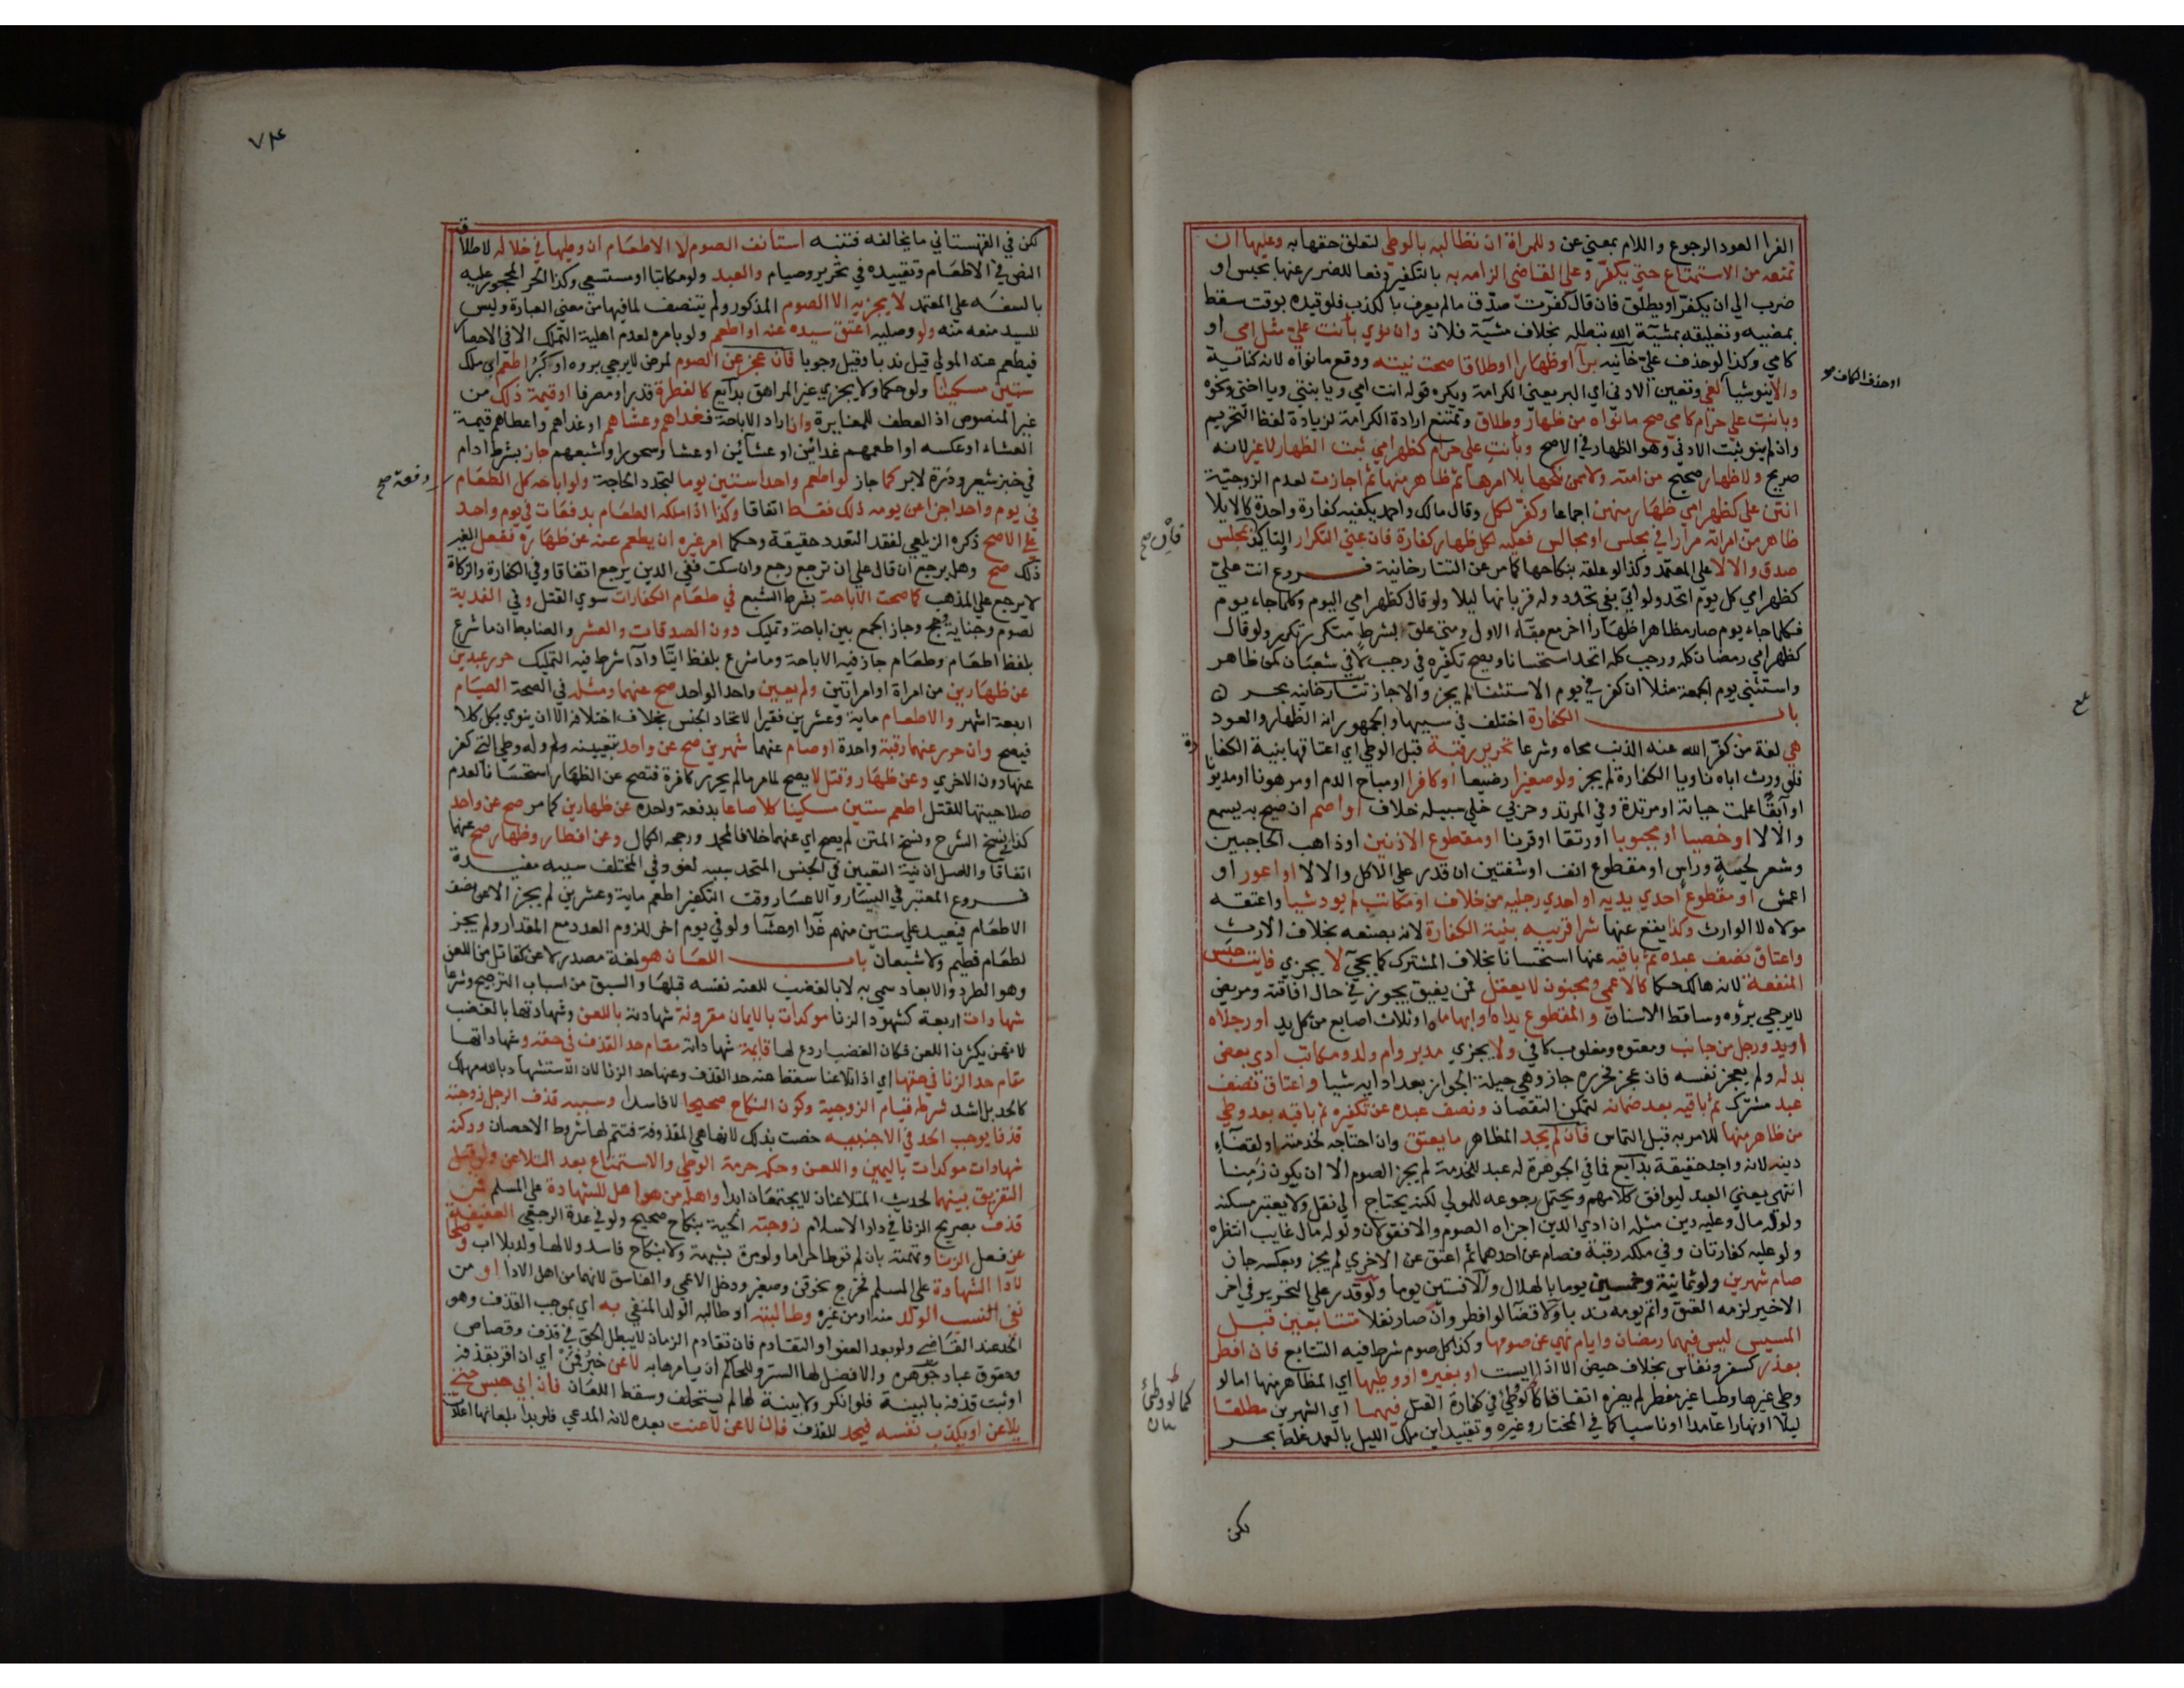 الفرا العود الرجوع واللام بمعني عن وللمراة ان تطالبه بالوطي لتعلق حقها به وعليها ان
تمنعه من الاستمتاع حتي يكفر وعلي القاضي الزامه به بالتكفير دفعا للضرر عنها بحبس او
ضرب الي ان يكفر او يطلق فان قال كفرت صدق مالم يعرف بالكذب فلو قيده بوقت سقط
بمضيه وتعليقه بمشيية الله تبطله بخلاف مشية فلان وان نوي بانت علي مثل امي او
كامي وكذا لو حذف علي خانيه برا او ظهارا او طلاقا صحت نيته ووقع ما نواه لانه كناية
والا ينو شيا لغي وتعين الادني اي البر يعني الكرامة ويكره قوله انت امي ويا بنتي ويا اختي ونحوه
او حذف الكاف
وبانت علي حرام كامي صح ما نواه من ظهار وطلاق وتمتنع ارادة الكرامة لزيادة لفظ التحريم
وان لم ينو ثبت الادني وهو الظهار في الاصح وبانت علي حرام كظهر امي ثبت الظهار لا غير لانه
صريح ولا ظهار صحيح من امته ولا ممن نكحها بلا امرها ثم ظاهر منها ثم اجازت لعدم الزوجية
انتن علي كظهر امي ظهار منهن اجماعا وكفر لكل وقال مالك واحمد يكفيه كفارة واحدة كالايلا
ظاهر من امراته مرارا في مجلس او مجالس فعليه لكل ظهار كفارة فان عني التكرار والتاكيد بمجلس
صدق والا لا علي المعتمد وكذا لو علقه بنكاحها كما مر عن التتارخانية فروع انت علي
كظهر امي كل يوم اتحد ولو اتي بفي تجدد وله قربانها ليلا ولو قال كظهر امي اليوم وكلما جاء يوم
فكلما جاء يوم صار مظاهرا ظهارا اخر مع بقاء الاول ومتي علق بشرط متكرر تكرر ولو قال
كظهر امي رمضان كله ورجب كله اتحد استحسانا ويصح تكفيره في رجب لا في شعبان كمن ظاهر
واستثني يوم الجمعة مثلا ان كفر في يوم الاستثنا لم يجز والا جاز تتارخانيه بحر
باب الكفارة اختلف في سببها والجمهور انه الظهار والعود
هي لغة من كفر الله عنه الذنب محاه وشرعا تحرير رقبة قبل الوطي اي اعتاقها بنية الكفارة
فلو ورث اباه ناويا الكفارة لم يجز ولو صغيرا رضيعا او كافرا او مباح الدم او مرهونا او مديونا
او آبقا علمت حياته او مرتدة وفي المرتد وحربي خلي سبيله خلاف او اصم ان صيح به يسمع
والا لا او خصيا او مجبوبا او رتقا او قرنا او مقطوع الاذنين او ذاهب الحاجبين
وشعر لحية وراس او مقطوع انف او شفتين ان قدر علي الاكل والا لا او اعور او
اعمش او مقطوع احدي يديه او احدي رجليه من خلاف او مكاتب لم يود شيا واعتقه
مولاه لا الوارث وكذا يقع عنها شرا قريبه بنية الكفارة لانه بصنعه بخلاف الارث
واعتاق نصف عبده ثم باقيه عنها استحسانا بخلاف المشترك كما يجي لا يجزي فايت جنس
المنفعة لانه هالك حكما كالاعمي ومجنون لا يعقل فمن يفيق يجوز في حال افاقته ومريض
لا يرجي بروه وساقط الاسنان والمقطوع يداه او ابهاماه او ثلاث اصابع من كل يد او رجلاه
او يد ورجل من جانب ومعتوه ومغلوب كافي ولا يجزي مدبر وام ولد ومكاتب ادي بعض
بدله ولم يعجز نفسه فان عجز فحرره جاز وهي حيلة الجواز بعد ادايه شيا واعتاق نصف
عبد مشترك ثم باقيه بعد ضمانه لتمكن النقصان ونصف عبده عن تكفيره ثم باقيه بعد وطي
من ظاهر منها للامر به قبل التماس فان لم يجد المظاهر ما يعتق وان احتاجه لخدمته او لقضاء
دينه لانه واجد حقيقة بدايع فما في الجوهرة له عبد للخدمة لم يجز الصوم الا ان يكون زمنا
انتهي يعني العبد ليوافق كلامهم ويحتمل رجوعه للمولي لكنه يحتاج الي نقل ولا يعتبر مسكنه
ولو له مال وعليه دين مثله ان ادي الدين اجزاه الصوم والا فقولان ولو له مال غايب انتظره
ولو عليه كفارتان وفي ملكه رقبة فصام عن احدهما ثم اعتق عن الاخري لم يجز وبعكسه جاز
صام شهرين ولو ثمانية وخمسين يوما بالهلال والا فستين يوما ولو قدر علي التحرير في اخر
الاخير لزمه العتق واتم يومه ندبا ولا قضا لو افطر وان صار نفلا متتابعين قبل
المسيس ليس فيهما رمضان وايام نهي عن صومها وكذا كل صوم شرط فيه التتابع فان افطر
بعذر كسفر ونفاس بخلاف حيض الا اذا ايست او بغيره او وطيها اي المظاهر منها اما لو
وطي غيرها وطيا غير مفطر لم يضره اتفاقا كالوطي في كفارة القتل فيهما اي الشهرين مطلقا
ليلا او نهارا عامدا او ناسيا كما في المختار وغيره وتقييد ابن ملك الليل بالعمد غلط بحر
لكن
٧٤
لكن في القهستاني ما يخالفه فتنبه استانف الصوم لا الاطعام ان وطيها في خلاله لاطلاق
النص في الاطعام وتقييده في تحرير وصيام والعبد ولو مكاتبا او مستسعي وكذا الحر المحجور عليه
بالسفه علي المعتمد لا يجزيه الا الصوم المذكور ولم يتنصف لما فيها من معني العبادة وليس
للسيد منعه منه ولو وصليه اعتق سيده عنه او اطعم ولو بامره لعدم اهلية التملك الا في الاحصار
فيطعم عنه المولي قيل ندبا وقيل وجوبا فان عجز عن الصوم لمرض لا يرجي بروه او كبر اطعم اي ملك
ستين مسكينا ولو حكما ولا يجزي غير المراهق بدايع كالفطرة قدرا ومصرفا او قيمة ذلك من
غير المنصوص اذ العطف للمغايرة وان اراد الاباحة فغداهم وعشاهم او غداهم واعطاهم قيمة
العشاء او عكسه او اطعمهم غدائين او عشائين او عشا وسحورا واشبعهم جاز بشرط ادام
في خبز شعير وذرة لا بر كما جاز لو اطعم واحدا ستين يوما لتجدد الحاجة ولو اباحه كل الطعام
دفعة صح
في يوم واحد اجزا عن يومه ذلك فقط اتفاقا وكذا اذا ملكه الطعام بدفعات في يوم واحد
علي الاصح ذكره الزيلعي لفقد التعدد حقيقة وحكما امر غيره ان يطعم عنه عن ظهاره ففعل الغير
ذلك صح وهل يرجع ان قال علي ان ترجع رجع وان سكت ففي الدين يرجع اتفاقا وفي الكفارة والزكاة
لا يرجع علي المذهب كما صحت الاباحة بشرط الشبع في طعام الكفارات سوي القتل وفي الفدية
لصوم وجناية حج وجاز الجمع بين اباحة وتمليك دون الصدقات والعشر والضابط ان ما شرع
بلفظ اطعام وطعام جاز فيه الاباحة وما شرع بلفظ ايتا وادا شرط فيه التمليك حرر عبدين
عن ظهارين من امراة او امراتين ولم يعين واحدا لواحد صح عنهما ومثله في الصحة الصيام
اربعة اشهر والاطعام ماية وعشرين فقيرا لاتحاد الجنس بخلاف اختلافه الا ان ينوي بكل كلا
فيصح وان حرر عنهما رقبة واحدة او صام عنهما شهرين صح عن واحد بتعيينه وله وطي التي كفر
عنها دون الاخري وعن ظهار وقتل لا يصح لما مر مالم يحرر كافرة فتصح عن الظهار استحسانا لعدم
صلاحيتها للقتل اطعم ستين مسكينا كلا صاعا بدفعة واحدة عن ظهارين كما مر صح عن واحد
كذا في نسخ الشرح ونسخ المتن لم يصح اي عنهما خلافا لمحمد ورجحه الكمال وعن افطار وظهار صح عنهما
اتفاقا والاصل ان نية التعيين في الجنس المتحد سببه لغو وفي المختلف سببه مفيدة
فروع المعتبر في اليسار والاعسار وقت التكفير اطعم ماية وعشرين لم يجز الا عن نصف
الاطعام فيعيد علي ستين منهم غدا او عشا ولو في يوم اخر للزوم العدد مع المقدار ولم يجز
اطعام فطيم ولا شبعان باب اللعان هو لغة مصدر لاعن كقاتل من اللعن
وهو الطرد والابعاد سمي به لا بالغضب للعنه نفسه قبلها والسبق من اسباب الترجيح وشرعا
شهادات اربعة كشهود الزنا موكدات بالايمان مقرونة شهادته باللعن وشهادتها بالغضب
لانهن يكثرن اللعن فكان الغضب اردع لها قايمة شهاداته مقام حد القذف في حقه وشهاداتها
مقام حد الزنا في حقها اي اذا تلاعنا سقط عنه حد القذف وعنها حد الزنا لان الاستشهاد بالله مهلك
كالحد بل اشد شرطه قيام الزوجية وكون النكاح صحيحا لا فاسدا وسببه قذف الرجل زوجته
قذفا يوجب الحد في الاجنبيه خصت بذلك لانها هي المقذوفة فتتم لها شروط الاحصان وركنه
شهادات موكدات باليمين واللعن وحكمه حرمة الوطي والاستمتاع بعد التلاعن ولو قبل
التفريق بينهما لحديث المتلاعنان لا يجتمعان ابدا واهله من هو اهل للشهادة علي المسلم فمن
قذف بصريح الزنا في دار الاسلام زوجته الحية بنكاح صحيح ولو في عدة الرجعي العفيفة
عن فعل الزنا وتهمته بان لم توطا حراما ولو مرة بشبهة ولا بنكاح فاسد ولا لها ولد بلا اب وصلحا
لادا الشهادة علي المسلم فخرج نحو قن وصغير ودخل الاعمي والفاسق لانهما من اهل الادا او من
نفي النسب الولد منه او من غيره وطالبته او طالبه الولد المنفي به اي بموجب القذف وهو
الحد عند القاضي ولو بعد العفو او التقادم فان تقادم الزمان لا يبطل الحق في قذف وقصاص
وحقوق عباد جوهره والافضل لها الستر وللحاكم ان يامرها به لاعن خبر فمن اي ان اقر بقذفه
او ثبت قذفه بالبينة فلو انكر ولا بينة لها لم يستحلف وسقط اللعان فان ابي حبس حتي
يلاعن او يكذب نفسه فيحد للقذف فان لاعن لاعنت بعده لانه المدعي فلو بدا بلعانها اعادت